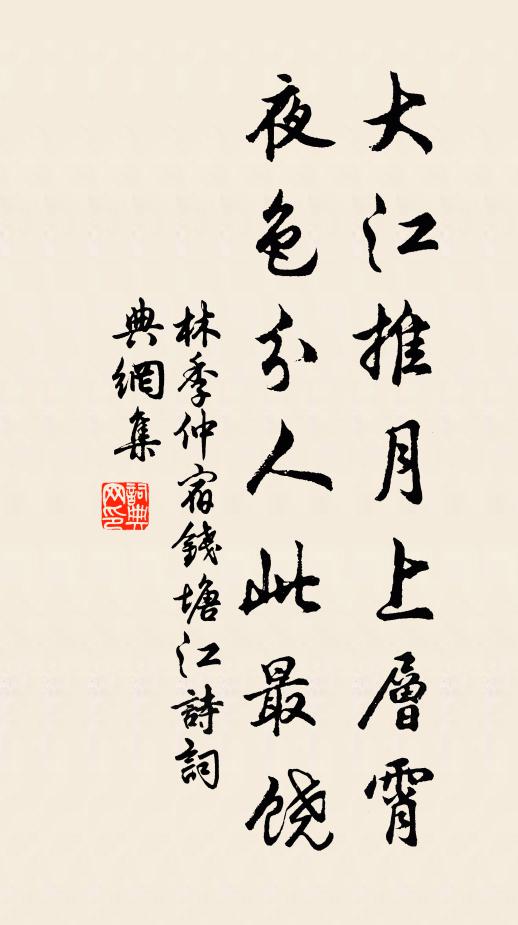 大江推月上層霄
夜色分人此最饒
林季仲宿錢塘江詩詞
典網集
詞典
网印